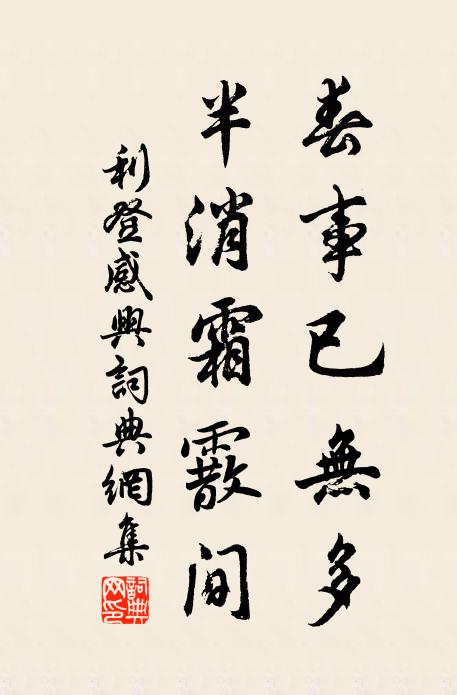 春事已無多
半消霜霰间
利登感興詞典網集
詞典網印